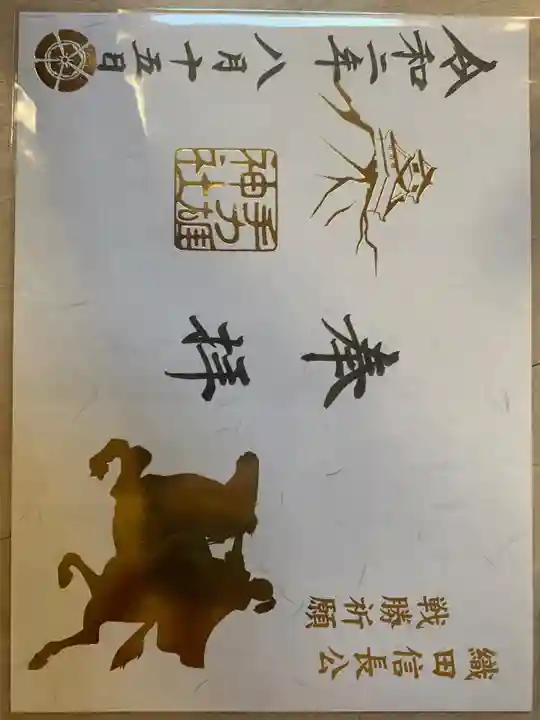 織田信長公
戦勝祈願
奉拝
手力雄
神社
令和二年八月十五日